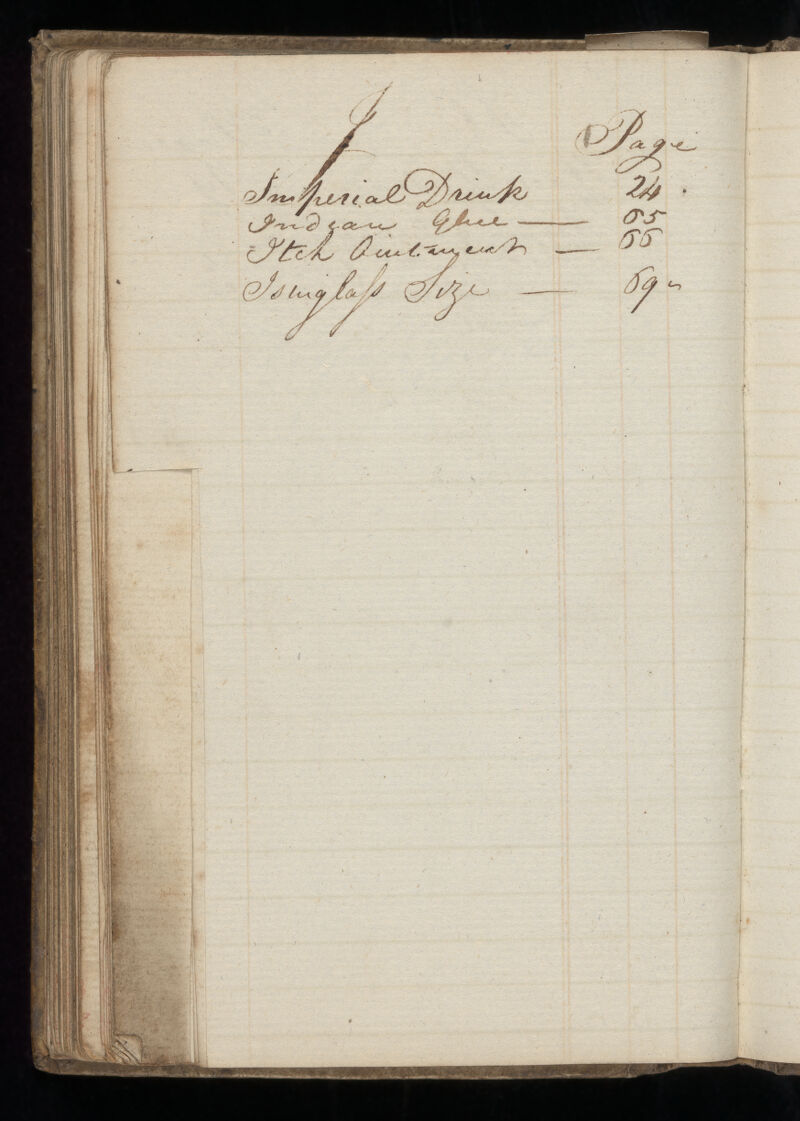 I
Page
Imperial Drink 24.
Indian Glue — 65
Itch Ointment — 66
Isinglass Size — 69